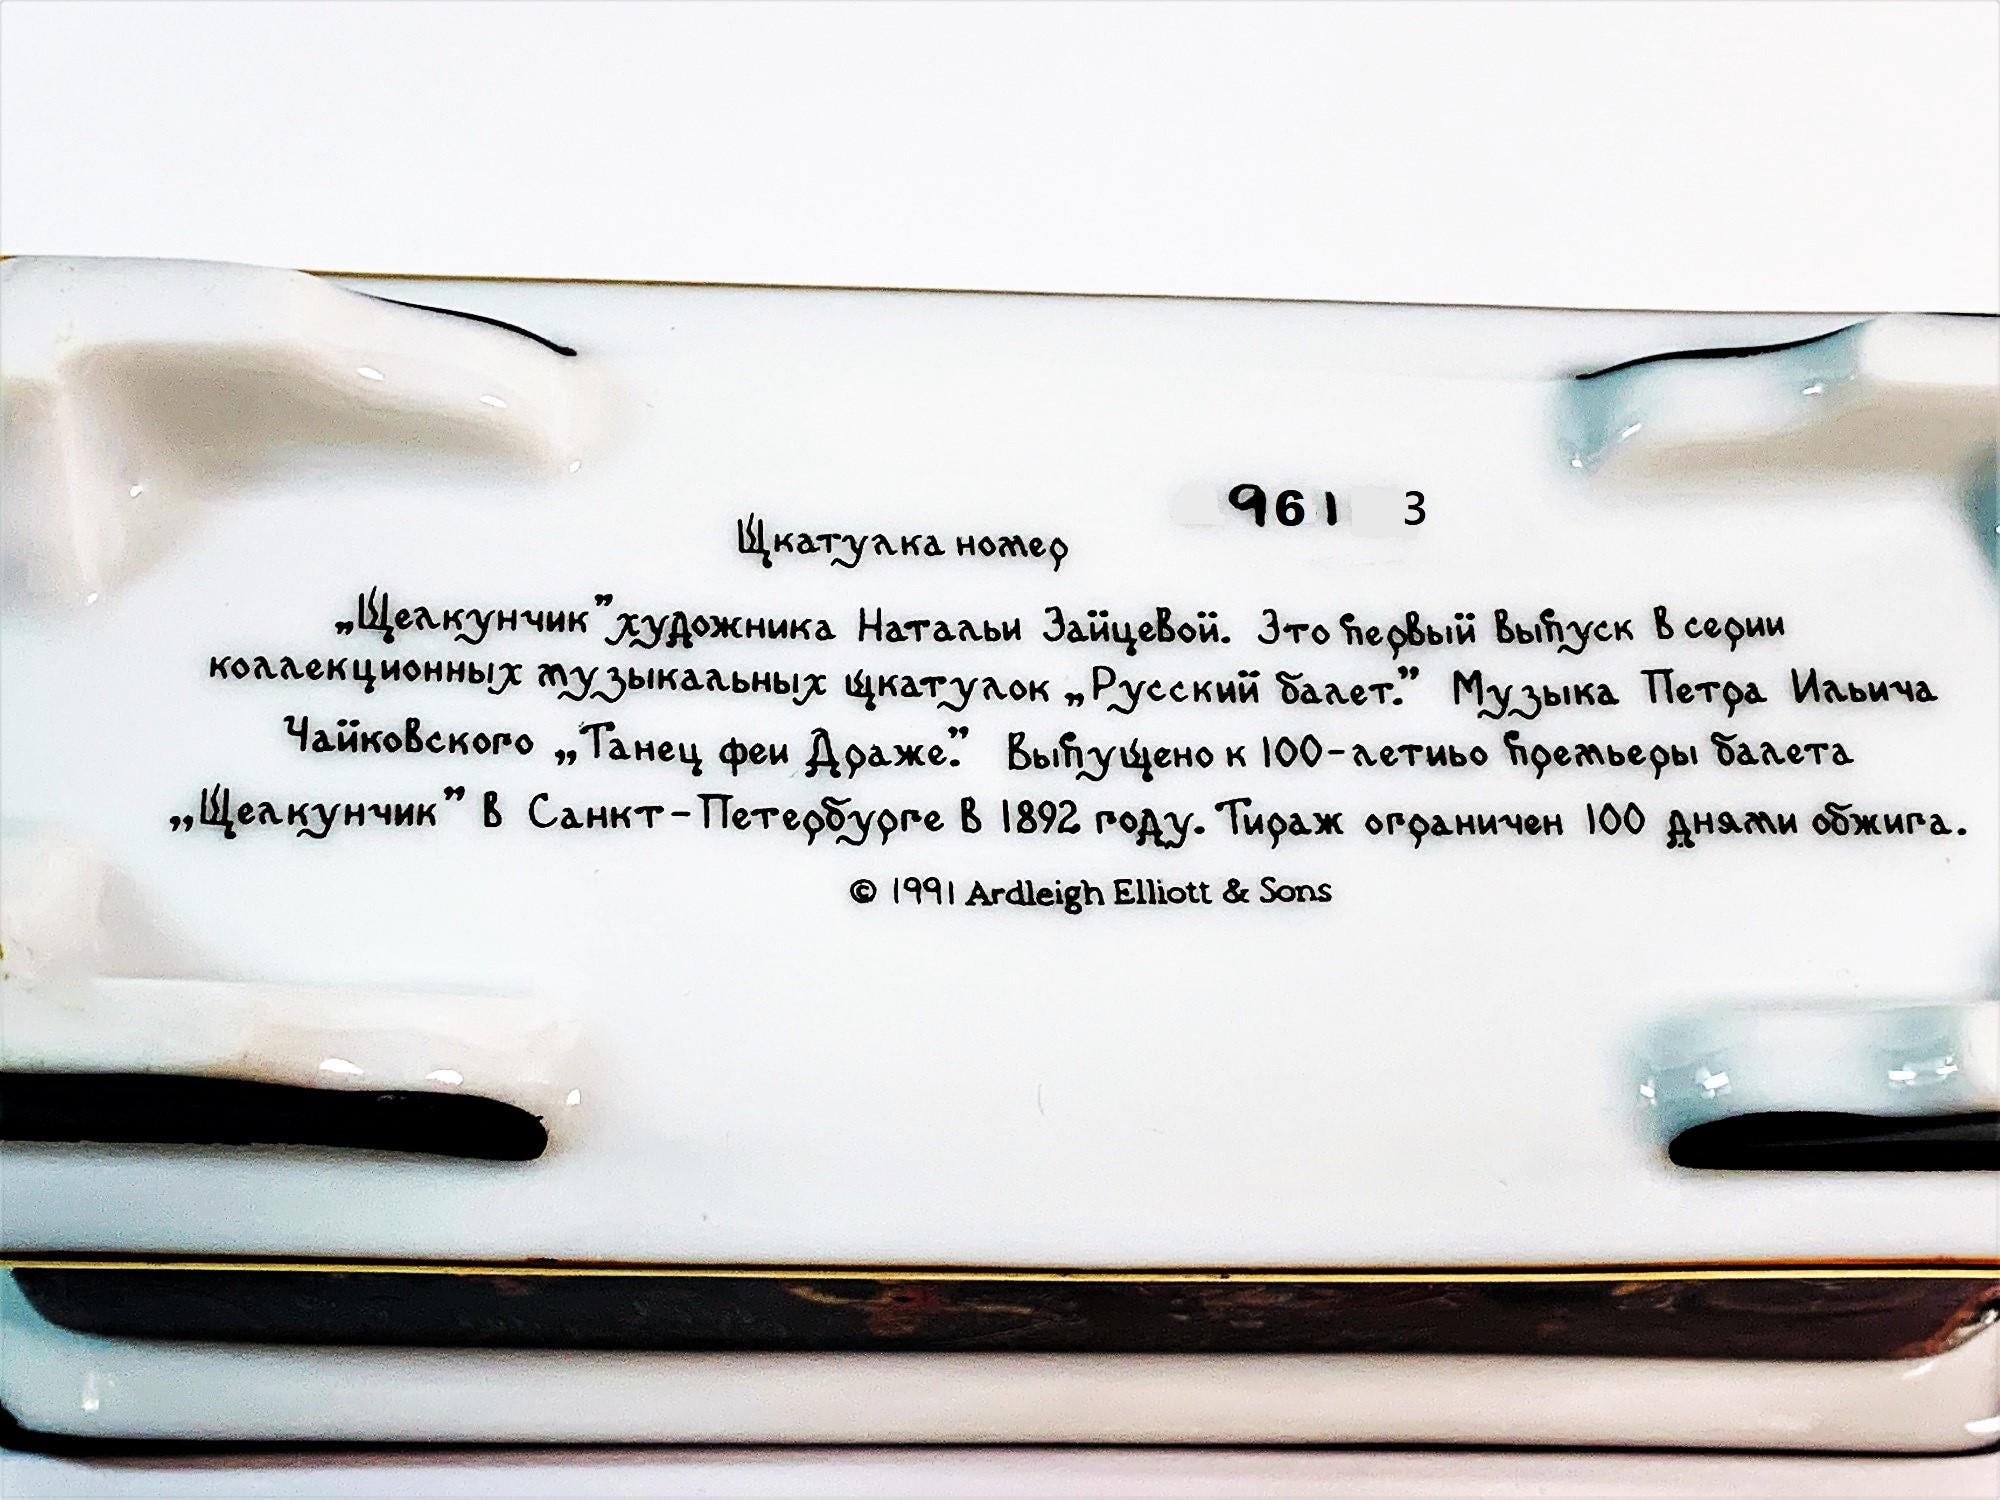 961 3
Щкатулка номер
„Щелкунчик” художника Натальи Зайцевой. Это первый выпуск в серии
коллекционных музыкальных щкатулок „Русский балет.” Музыка Петра Ильича
Чайковского „Танец феи Драже.” Выпущено к 100-летиьо премьеры балета
„Щелкунчик” в Санкт-Петербурге в 1892 году. Тираж ограничен 100 днями обжига.
© 1991 Ardleigh Elliott & Sons